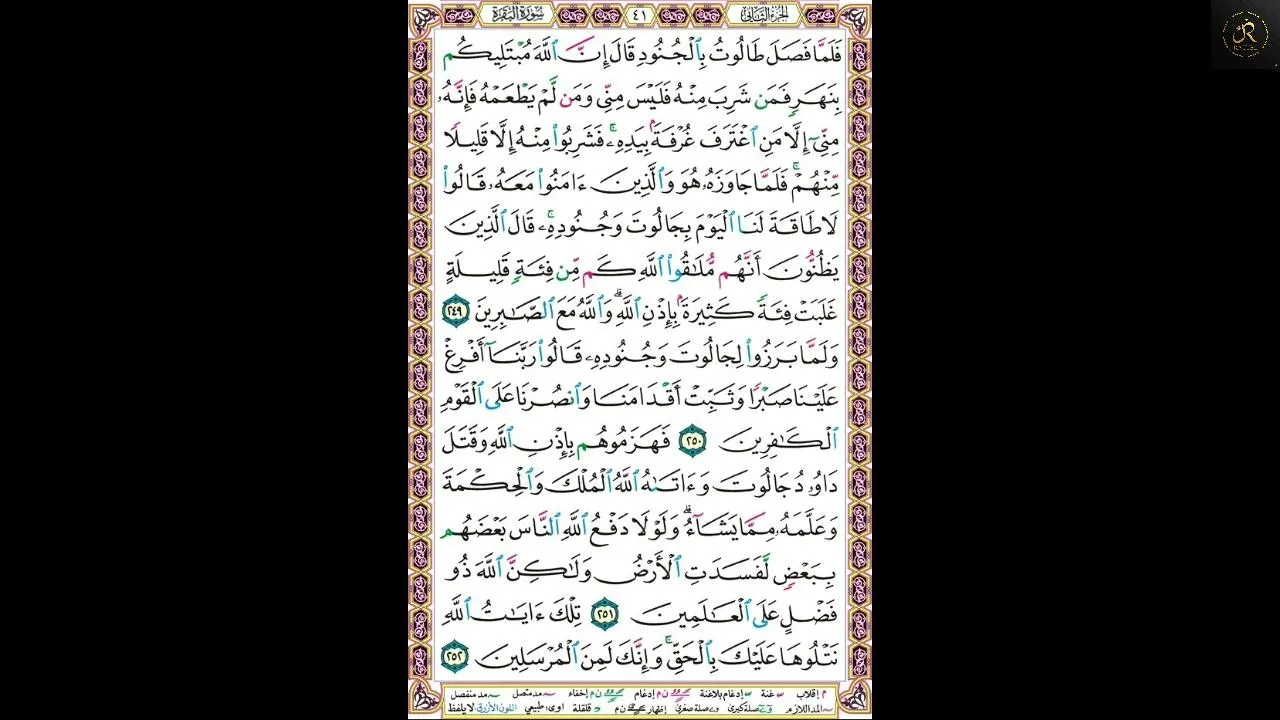 الجزء الثاني ٤١ سورة البقرة
فَلَمَّا فَصَلَ طَالُوتُ بِٱلْجُنُودِ قَالَ إِنَّ ٱللَّهَ مُبْتَلِيكُم
بِنَهَرٍ فَمَن شَرِبَ مِنْهُ فَلَيْسَ مِنِّى وَمَن لَّمْ يَطْعَمْهُ فَإِنَّهُۥ
مِنِّىٓ إِلَّا مَنِ ٱغْتَرَفَ غُرْفَةًۢ بِيَدِهِۦ ۚ فَشَرِبُوا۟ مِنْهُ إِلَّا قَلِيلًا
مِّنْهُمْ ۚ فَلَمَّا جَاوَزَهُۥ هُوَ وَٱلَّذِينَ ءَامَنُوا۟ مَعَهُۥ قَالُوا۟
لَا طَاقَةَ لَنَا ٱلْيَوْمَ بِجَالُوتَ وَجُنُودِهِۦ ۚ قَالَ ٱلَّذِينَ
يَظُنُّونَ أَنَّهُم مُّلَـٰقُوا۟ ٱللَّهِ كَم مِّن فِئَةٍ قَلِيلَةٍ
غَلَبَتْ فِئَةً كَثِيرَةًۢ بِإِذْنِ ٱللَّهِ ۗ وَٱللَّهُ مَعَ ٱلصَّـٰبِرِينَ ٢٤٩
وَلَمَّا بَرَزُوا۟ لِجَالُوتَ وَجُنُودِهِۦ قَالُوا۟ رَبَّنَآ أَفْرِغْ
عَلَيْنَا صَبْرًا وَثَبِّتْ أَقْدَامَنَا وَٱنصُرْنَا عَلَى ٱلْقَوْمِ
ٱلْكَـٰفِرِينَ ٢٥٠ فَهَزَمُوهُم بِإِذْنِ ٱللَّهِ وَقَتَلَ
دَاوُۥدُ جَالُوتَ وَءَاتَىٰهُ ٱللَّهُ ٱلْمُلْكَ وَٱلْحِكْمَةَ
وَعَلَّمَهُۥ مِمَّا يَشَآءُ ۗ وَلَوْلَا دَفْعُ ٱللَّهِ ٱلنَّاسَ بَعْضَهُم
بِبَعْضٍ لَّفَسَدَتِ ٱلْأَرْضُ وَلَـٰكِنَّ ٱللَّهَ ذُو
فَضْلٍ عَلَى ٱلْعَـٰلَمِينَ ٢٥١ تِلْكَ ءَايَـٰتُ ٱللَّهِ
نَتْلُوهَا عَلَيْكَ بِٱلْحَقِّ ۚ وَإِنَّكَ لَمِنَ ٱلْمُرْسَلِينَ ٢٥٢
م إقلاب غنة إدغام بلاغنة ن م إدغام ن م إخفاء مد متصل مد منفصل
المد اللازم صلة كبرى صلة صغرى إظهار ن م قلقلة اوى طبيعي اللون الأزرق لا يلفظ
JR